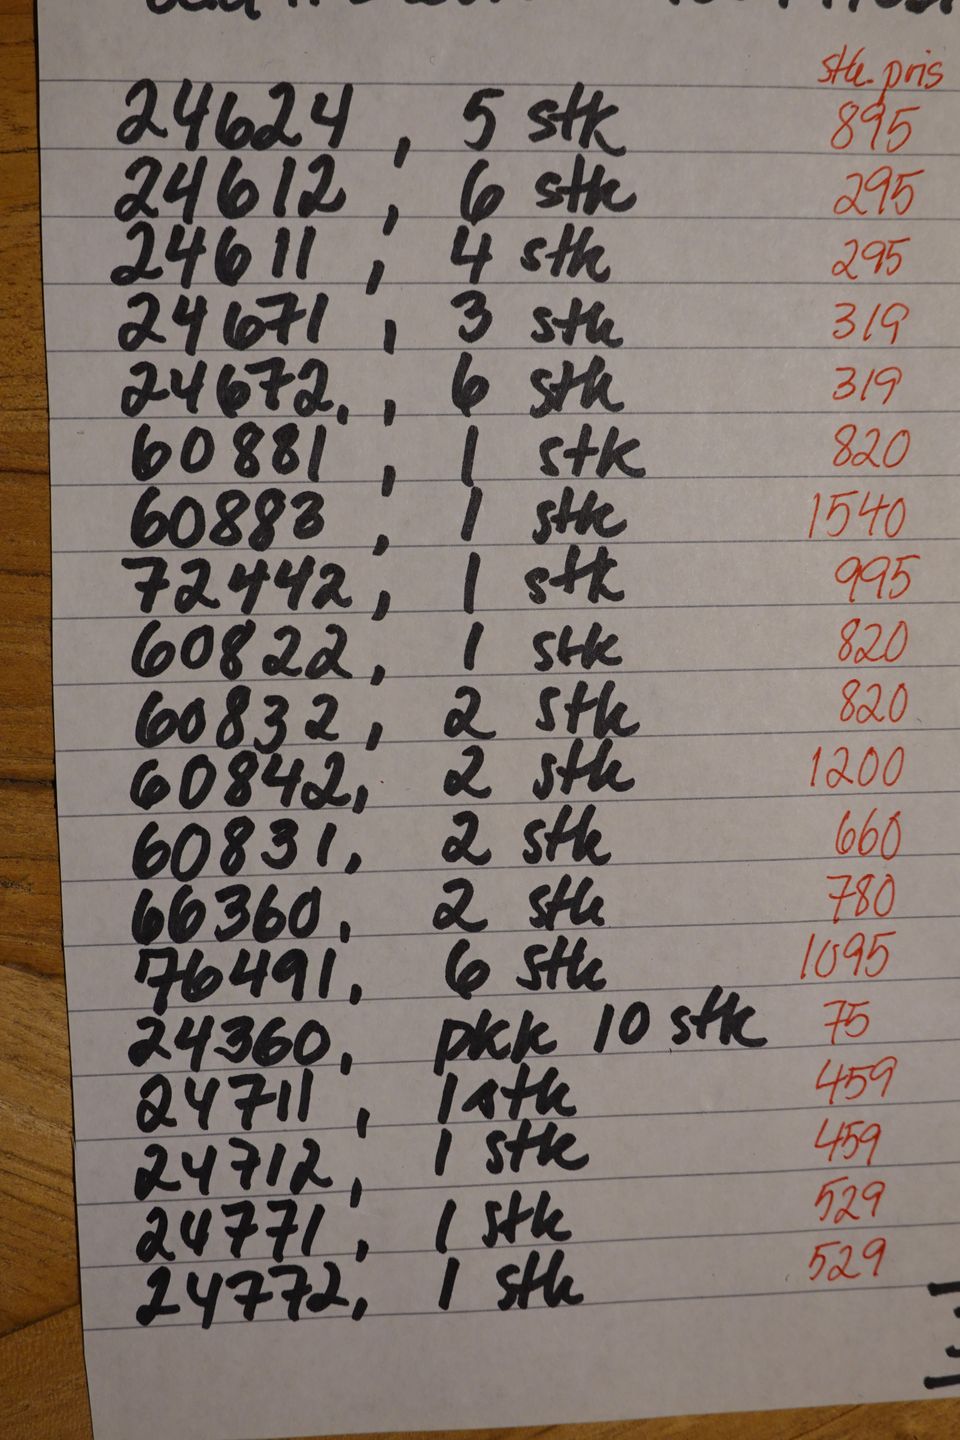 stk. pris
24624, 5 stk 895
24612, 6 stk 295
24611, 4 stk 295
24671, 3 stk 319
24672., 6 stk 319
60881, 1 stk 820
60883, 1 stk 1540
72442, 1 stk 995
60822, 1 stk 820
60832, 2 stk 820
60842, 2 stk 1200
60831, 2 stk 660
66360, 2 stk 780
76491, 6 stk 1095
24360, pkk 10 stk 75
24711, 1 stk 459
24712, 1 stk 459
24771, 1 stk 529
24772, 1 stk 529